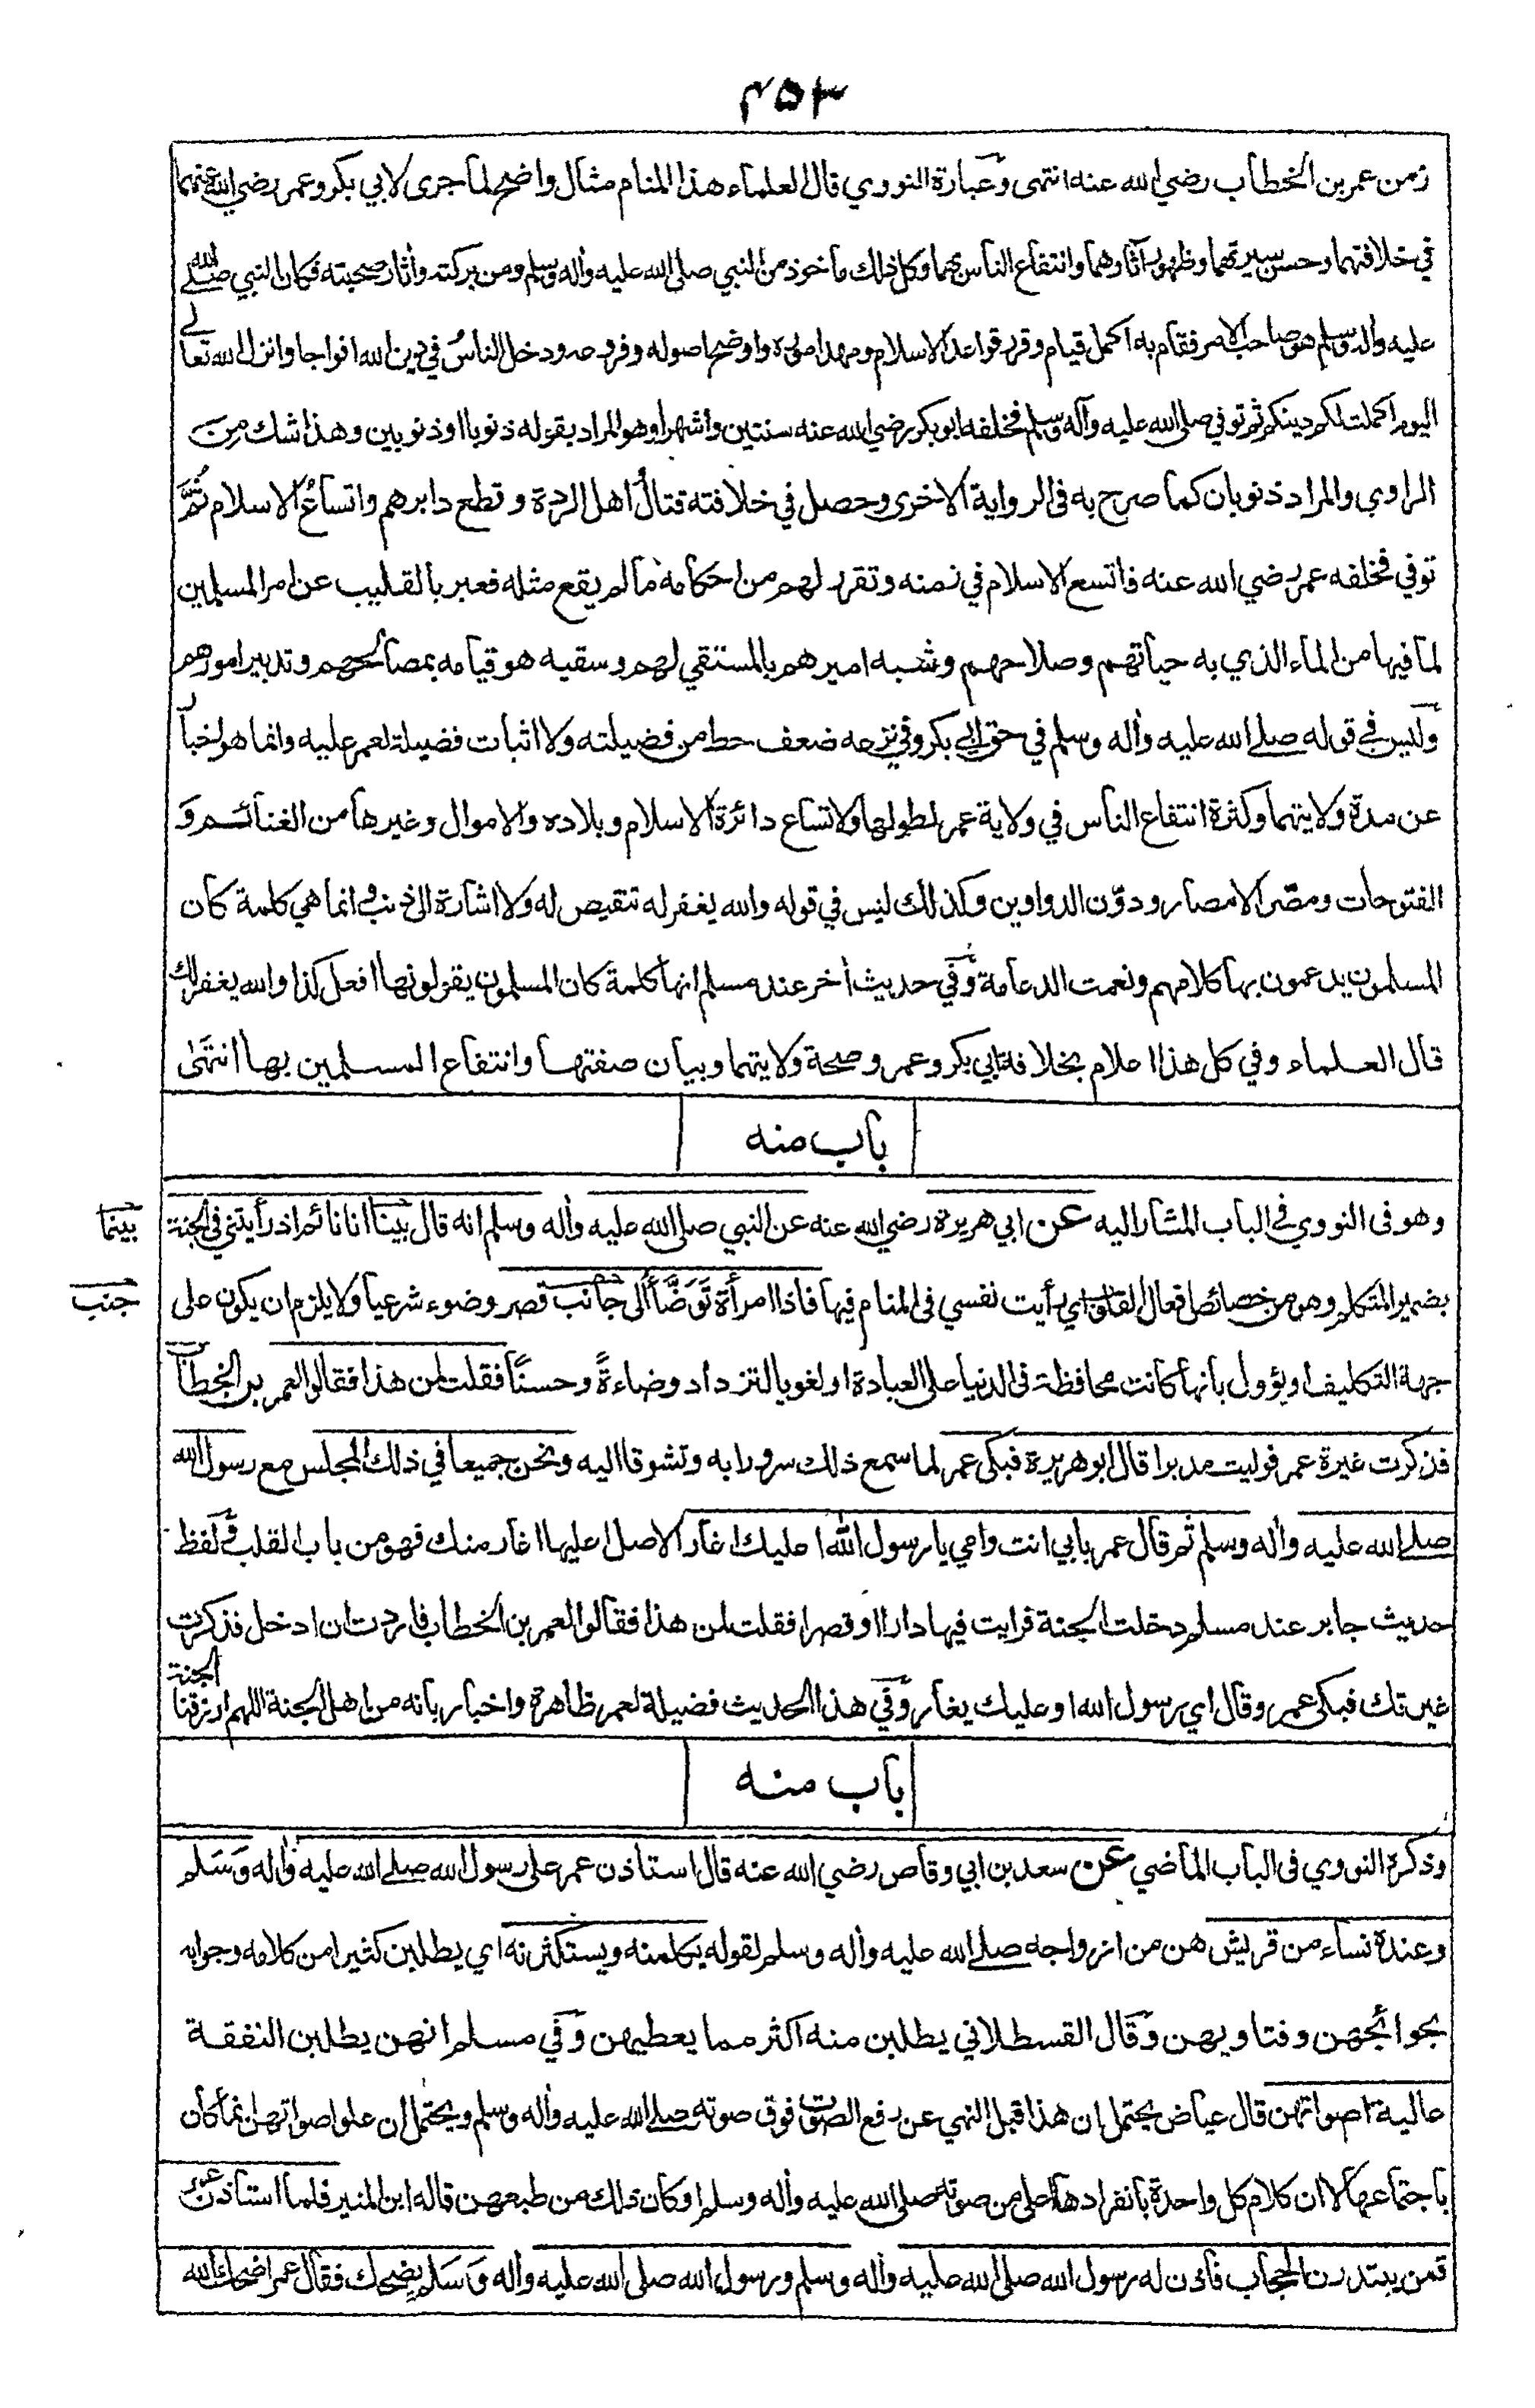 ٤٥٣
زمن عمر بن الخطاب رضي الله عنه انتهى وعبارة النووي قال العلماء هذا المنام مثال واضح لما جرى لابي بكر وعمر رضي الله عنهما
في خلافتهما وحسن سيرتهما وظهور آثارهما وانتفاع الناس بهما وكل ذلك ماخوذ من النبي صلى الله عليه وأله وسلم ومن بركته وأثار صحبته فكان النبي صلى الله
عليه وأله وسلم هو صاحب الامر فقام به اكمل قيام وقرر قواعد الاسلام ومهد اموره واوضح اصوله وفروعه ودخل الناس في دين الله افواجا وانزل الله تعالى
اليوم اكملت لكم دينكم ثم توفي صلى الله عليه وأله وسلم فخلفه ابو بكر رضي الله عنه سنتين واشهرا وهو المراد بقوله ذنوبا او ذنوبين وهذا شك من
الراوي والمراد ذنوبان كما صرح به فى الرواية الاخرى وحصل في خلافته قتال اهل الردة وقطع دابرهم واتساع الاسلام ثم
توفي فخلفه عمر رضي الله عنه فاتسع الاسلام في زمنه وتقرر لهم من احكامه ما لم يقع مثله فعبر بالقليب عن امر المسلمين
لما فيها من الماء الذي به حياتهم وصلاحهم وشبه اميرهم بالمستقي لهم وسقيه هو قيامه بمصالحهم وتدبير امورهم
وليس في قوله صلى الله عليه وأله وسلم في حق ابي بكر وفي نزعه ضعف حط من فضيلته ولا اثبات فضيلة لعمر عليه وانما هو اخبار
عن مدة ولايتهما وكثرة انتفاع الناس في ولاية عمر لطولها ولاتساع دائرة الاسلام وبلاده والاموال وغيرها من الغنائم و
الفتوحات ومصّر الامصار ودوّن الدواوين وكذلك ليس في قوله والله يغفر له تنقيص له ولا اشارة الى ذنب وانما هي كلمة كان
المسلمون يدعمون بها كلامهم ونعمت الدعامة وفي حديث أخر عند مسلم انها كلمة كان المسلمون يقولونها افعل كذا والله يغفر لك
قال العلماء وفي كل هذا اعلام بخلافة ابي بكر وعمر وصحة ولايتهما وبيان صفتها وانتفاع المسلمين بها انتهى
باب منه
وهو فى النووي في الباب المشار اليه عن ابي هريرة رضي الله عنه عن النبي صلى الله عليه وأله وسلم انه قال بينا انا نائم اذ رأيتني في الجنة
بينما
بضمير المتكلم وهو من خصائص افعال القلوب اي رأيت نفسي فى المنام فيها فاذا امرأة تَوَضَّأُ الى جانب قصر وضوء شرعيا ولا يلزم ان يكون على
جنب
جهة التكليف او يؤول بانها كانت محافظة فى الدنيا على العبادة او لغويا لتزداد وضاءةً وحسنًا فقلت لمن هذا فقالوا لعمر بن الخطاب
فذكرت غيرة عمر فوليت مدبرا قال ابو هريرة فبكى عمر لما سمع ذلك سرورا به وتشوقا اليه ونحن جميعا في ذلك المجلس مع رسول الله
صلى الله عليه وأله وسلم ثم قال عمر بابي انت وامي يا رسول الله اعليك اغار الاصل اعليها اغار منك فهو من باب القلب وفي لفظ
حديث جابر عند مسلم دخلت الجنة فرايت فيها دارا او قصرا فقلت لمن هذا فقالوا لعمر بن الخطاب فاردت ان ادخل فذكرت
غيرتك فبكى عمر وقال اي رسول الله او عليك يغار وفي هذا الحديث فضيلة لعمر ظاهرة واخبار بانه من اهل الجنة اللهم ارزقنا الجنة
باب منه
وذكره النووي فى الباب الماضي عن سعد بن ابي وقاص رضي الله عنه قال استاذن عمر على رسول الله صلى الله عليه وأله وسلم
وعنده نساء من قريش هن من ازواجه صلى الله عليه وأله وسلم لقوله يكلمنه ويستكثرنه اي يطلبن كثيرا من كلامه وجوابه
بحوائجهن وفتاويهن وقال القسطلاني يطلبن منه اكثر مما يعطيهن وفي مسلم انهن يطلبن النفقة
عالية اصواتهن قال عياض يحتمل ان هذا قبل النهي عن رفع الصوت فوق صوته صلى الله عليه وأله وسلم ويحتمل ان علو اصواتهن انما كان
باجتماعها لا ان كلام كل واحدة بانفرادها اعلى من صوته صلى الله عليه وأله وسلم او كان ذلك من طبعهن قاله ابن المنير فلما استاذن عمر
قمن يبتدرن الحجاب فاذن له رسول الله صلى الله عليه وأله وسلم ورسول الله صلى الله عليه وأله وسلم يضحك فقال عمر اضحك الله